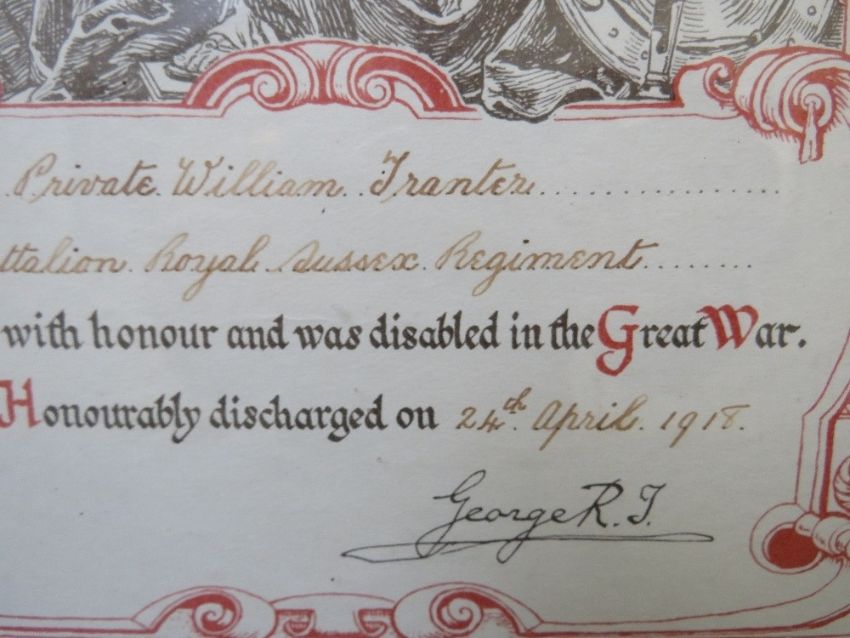 Private William Tranter
ttalion Royal Sussex Regiment
with honour and was disabled in the Great War.
Honourably discharged on 24th. April. 1918.
George R.I.